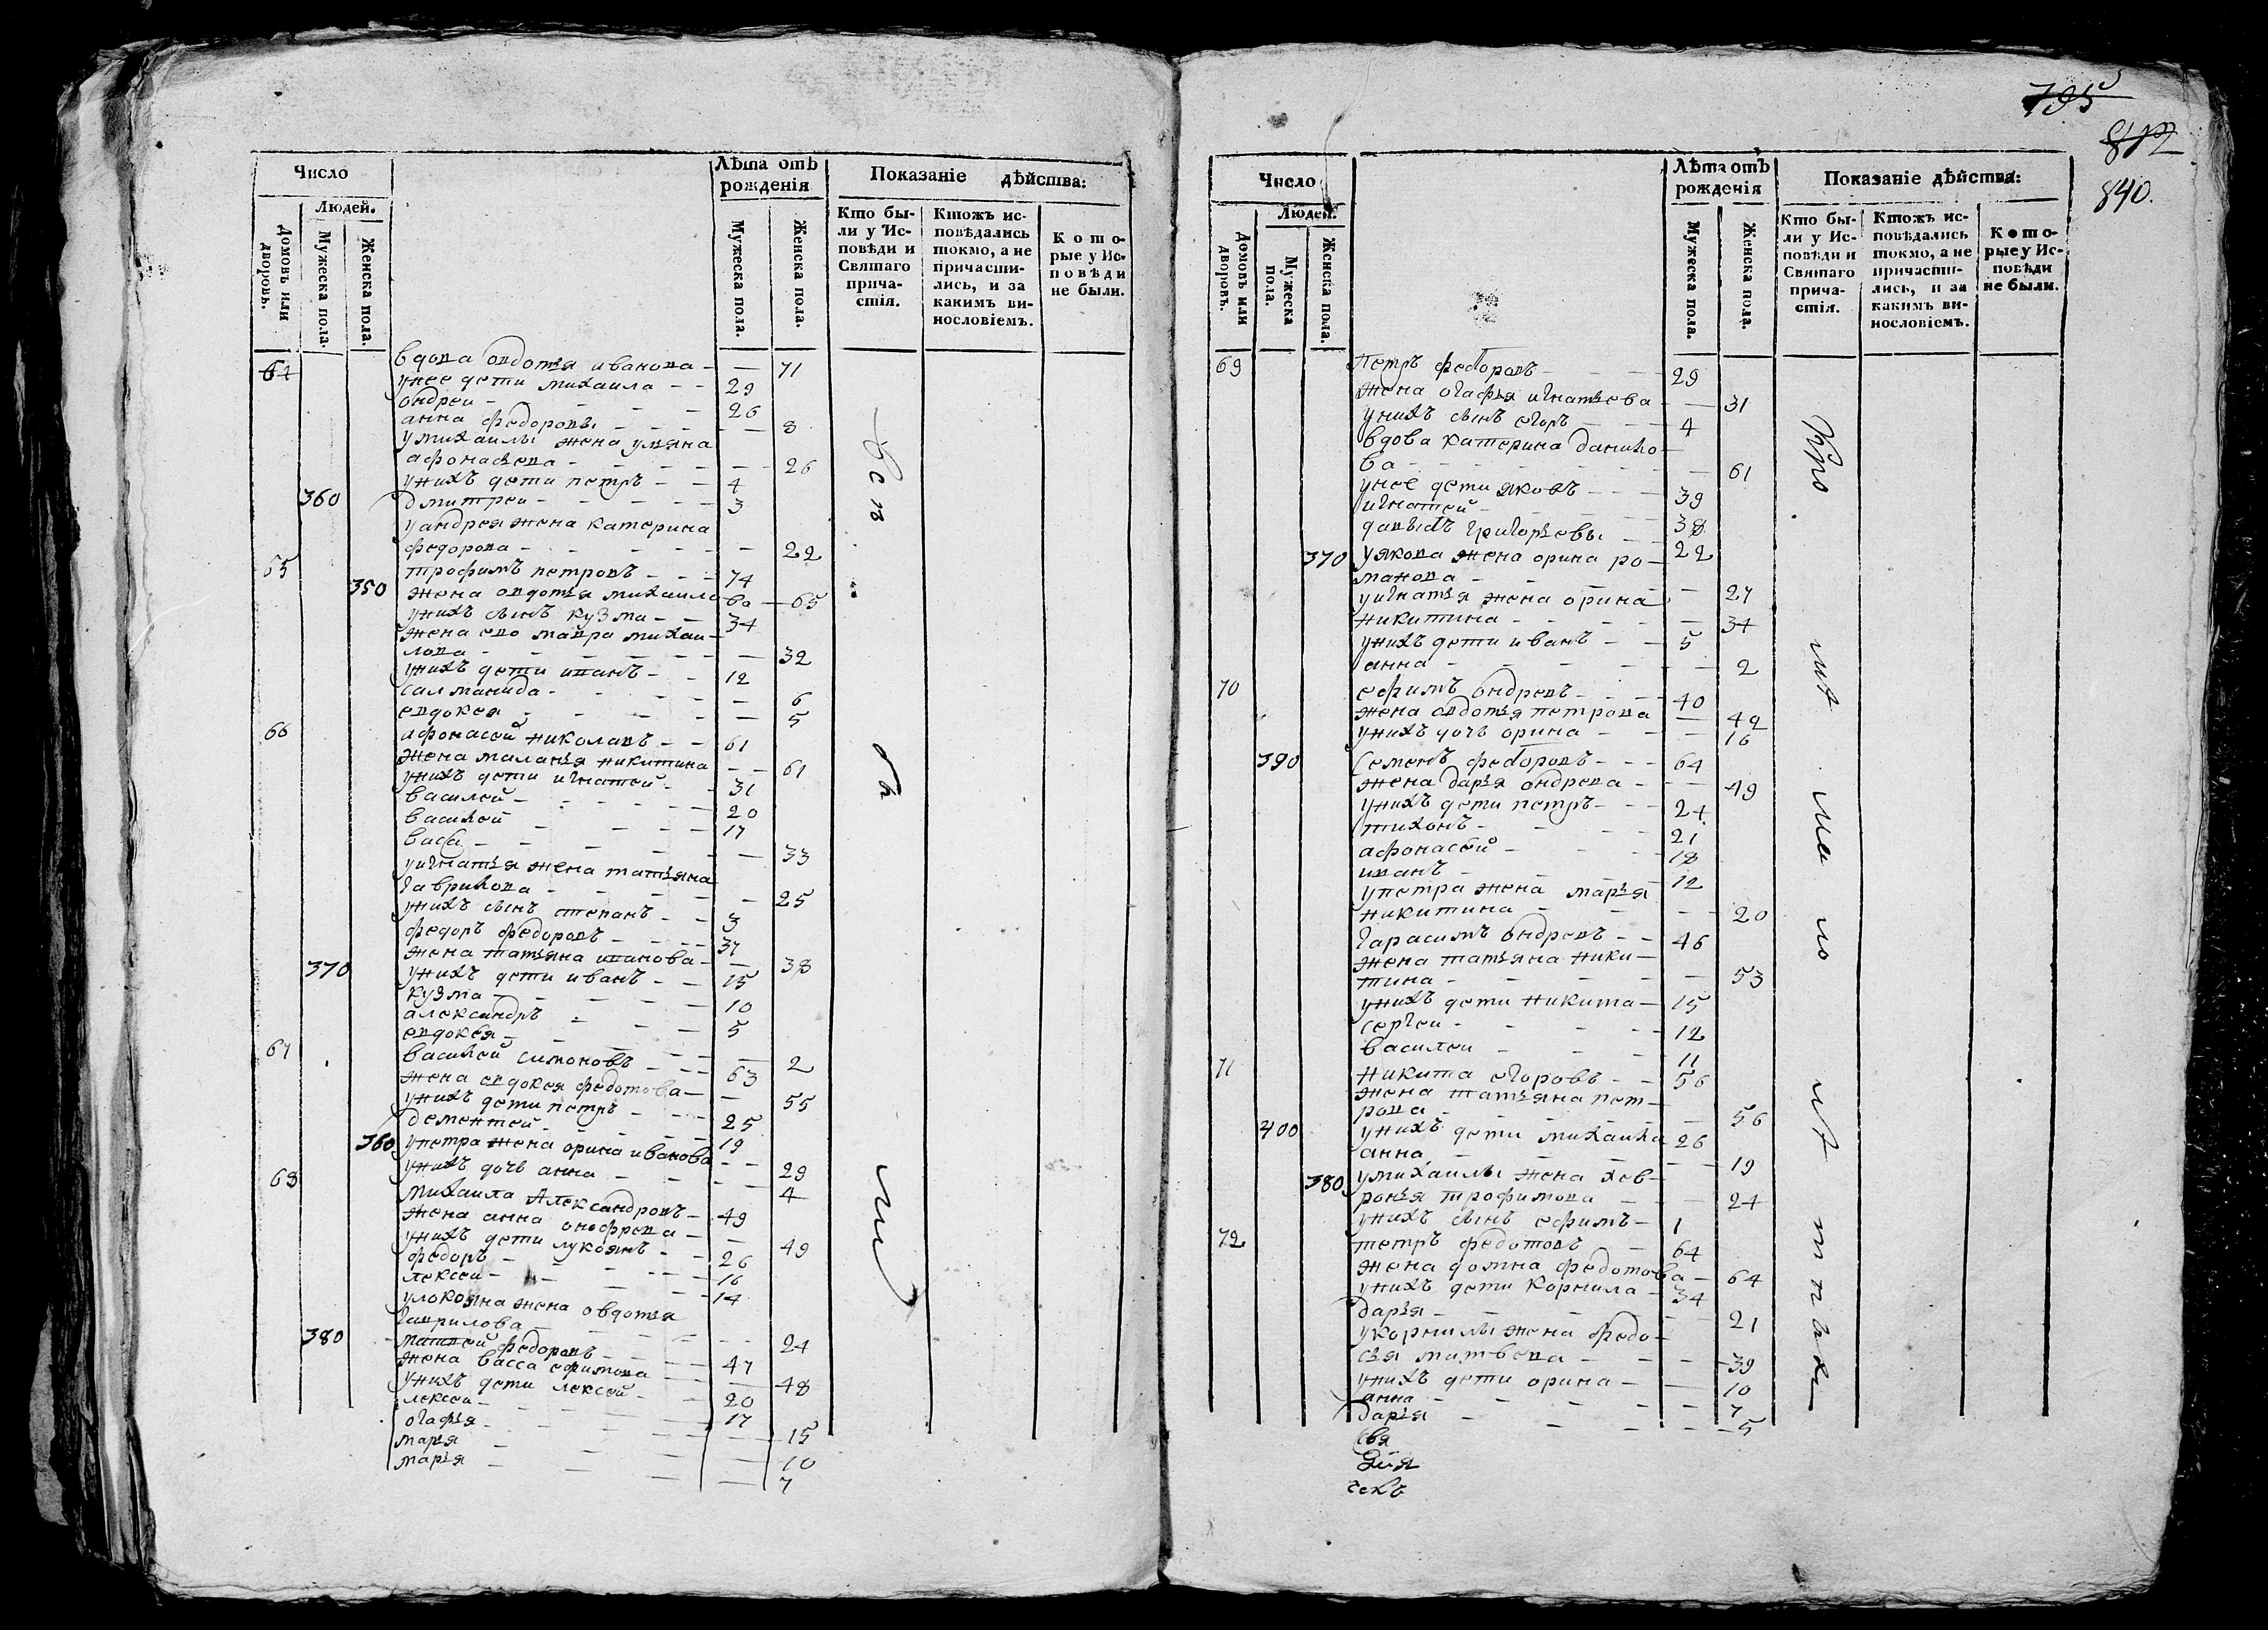 Число
Людей.
Домовъ или дворовъ.
Мужеска пола.
Женска пола.
Лѣта отъ рожденія
Мужеска пола.
Женска пола.
Показаніе дѣйства:
Кто бы-
ли у Ис-
повѣди и
Святаго
прича-
стія.
Ктожъ ис-
повѣдались
токмо, а не
причасти-
лись, и за
какимъ ви-
нословіемъ.
Кото-
рые у Ис-
повѣди
не были.
64 вдова овдотья иванова 71
унее дети михаила 29
ондреи 26
анна федоровы 8
умихаилы жена ульяна
афонасьева 26
унихъ дети петръ 4
360 дмитреи 3
уандрея жена катерина
федорова 22
65 трофимъ петровъ 74
350 жена овдотья михаилова 65
унихъ сынъ кузма 34
жена ево мавра михаи-
лова 32
унихъ дети иванъ 12
салманида 6
евдокея 5
66 афонасей николавъ 61
жена маланья никитина 61
унихъ дети игнатей 31
василей 20
василей 17
васа 33
уигнатья жена татьяна
гаврилова 25
унихъ сынъ степанъ 3
федоръ федоровъ 37
жена татьяна иванова 38
370 унихъ дети иванъ 15
кузма 10
александръ 5
евдокея 2
67 василей симоновъ 63
жена евдокея федотова 55
унихъ дети петръ 25
дементей 19
360 упетра жена орина иванова 29
унихъ дочь анна 4
68 михаила Александровъ 49
жена анна онофрева 49
унихъ дети лукоянъ 26
федоръ 16
лексеи 14
улокояна жена овдотья
гаврилова 24
380 матвей федоровъ 47
жена васса ефимова 48
унихъ дети лексей 20
лексеи 17
огафья 15
марья 10
марья 7
795
812
840.
Число
Людей.
Домовъ или дворовъ.
Мужеска пола.
Женска пола.
Лѣта отъ рожденія
Мужеска пола.
Женска пола.
Показаніе дѣйства:
Кто бы-
ли у Ис-
повѣди и
Святаго
прича-
стія.
Ктожъ ис-
повѣдались
токмо, а не
причасти-
лись, и за
какимъ ви-
нословіемъ.
Кото-
рые у Ис-
повѣди
не были.
69 Петръ федоровъ 29
жена огафья игнатьева 31
унихъ сынъ егоръ 4
вдова катерина данило-
ва 61
унее дети яковъ 39
игнатей 38
давыдъ григорьевы 22
370 уякова жена орина ро-
манова 27
уигнатья жена орина
никитина 34
унихъ дети иванъ 5
анна 2
70 ефимъ ондревъ 40
жена овдотья петрова 42
унихъ дочь орина 16
390 семенъ федоровъ 64
жена дарья ондрева 49
унихъ дети петръ 24
тихонъ 21
афонасей 18
иванъ 12
упетра жена марья
никитина 20
гарасимъ ондревъ 46
жена татьяна ники-
тина 53
унихъ дети никита 15
сергеи 12
василеи 11
71 никита егоровъ 56
жена татьяна пет-
рова 56
400 унихъ дети михаила 26
анна 19
380 умихаилы жена хев-
ронья трофимова 24
унихъ сынъ ефимъ 1
72 петръ федотовъ 64
жена домна федотова 64
унихъ дети корнила 34
дарья 21
укорнилы жена федо-
сья матвева 39
унихъ дети орина 10
анна 7
дарья 5